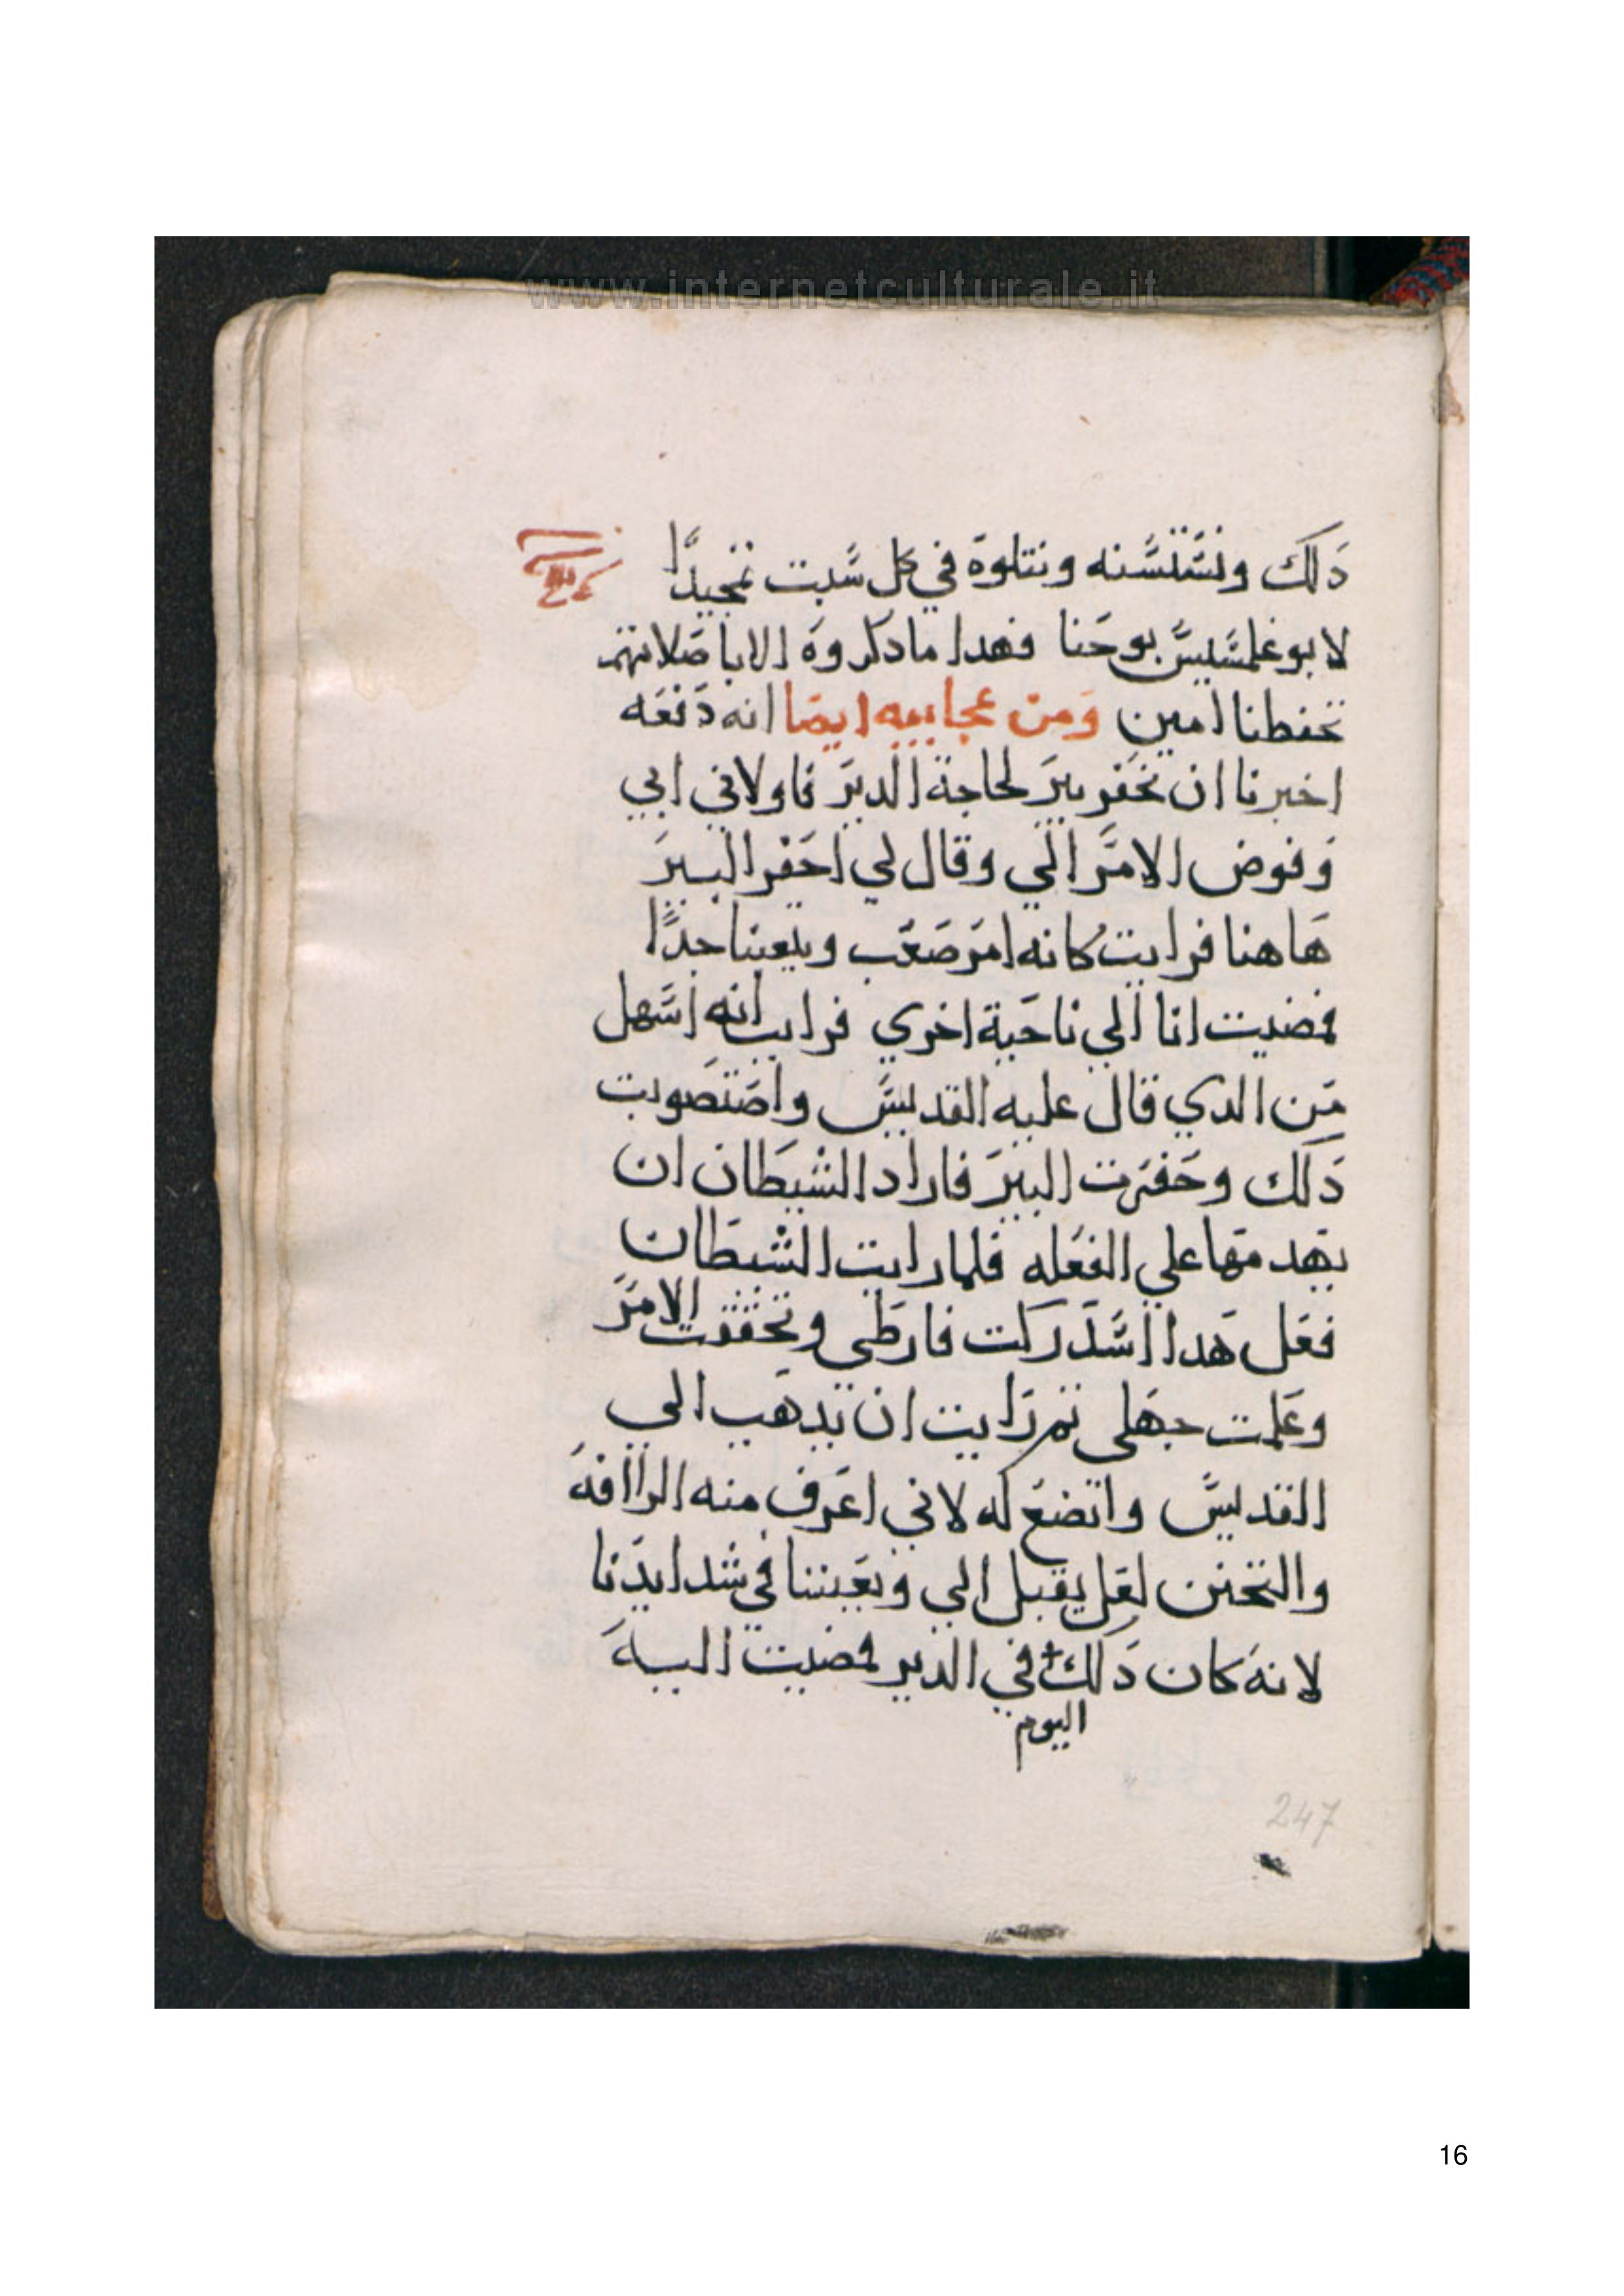 www.internetculturale.it
دلك ونستسنه ونتلوه في كل سبت تمجيدًا
لابو غلمسيس يوحنا فهدا ما دكروه الابا صلاتهم
تحفطنا امين ومن عجايبه ايضا انه دفعه
اخبرنا ان نحفر بير لحاجة الدير فاولاني ابي
وفوض الامر الي وقال لي احفر البير
هاهنا فرايت كانه امر صعب ويتعبنا جدًا
فمضيت انا الي ناحية اخري فرايت انه اسهل
من الدي قال عليه القديس واصتصوبت
دلك وحفرت البير فاراد الشيطان ان
يهدمها علي الفعله فلما رايت الشيطان
فعل هدا استدركت فارطي وتحققت الامر
وعلمت جهلي ثم رايت ان ندهب الي
القديس واتضع له لاني اعرف منه الراافه
والتحنن لعل يقبل الي ويعيننا في شدايدنا
لانه كان دلك + في الدير فمضيت اليه
اليوم
247
16